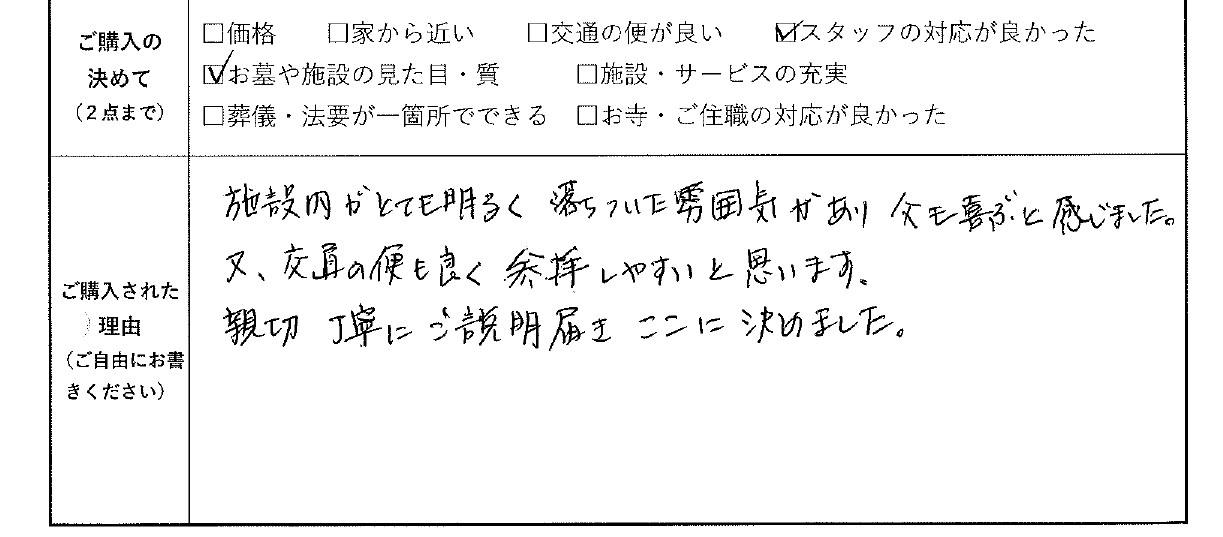 ご購入の
決めて
(2点まで)
□価格 □家から近い □交通の便が良い ☑スタッフの対応が良かった
☑お墓や施設の見た目・質 □施設・サービスの充実
□葬儀・法要が一箇所でできる □お寺・ご住職の対応が良かった
ご購入された
理由
(ご自由にお書
きください)
施設内がとても明るく 落ちついた雰囲気があり 父も喜ぶと感じました。
又、交通の便も良く 参拝しやすいと思います。
親切 丁寧に ご説明届き ここに決めました。